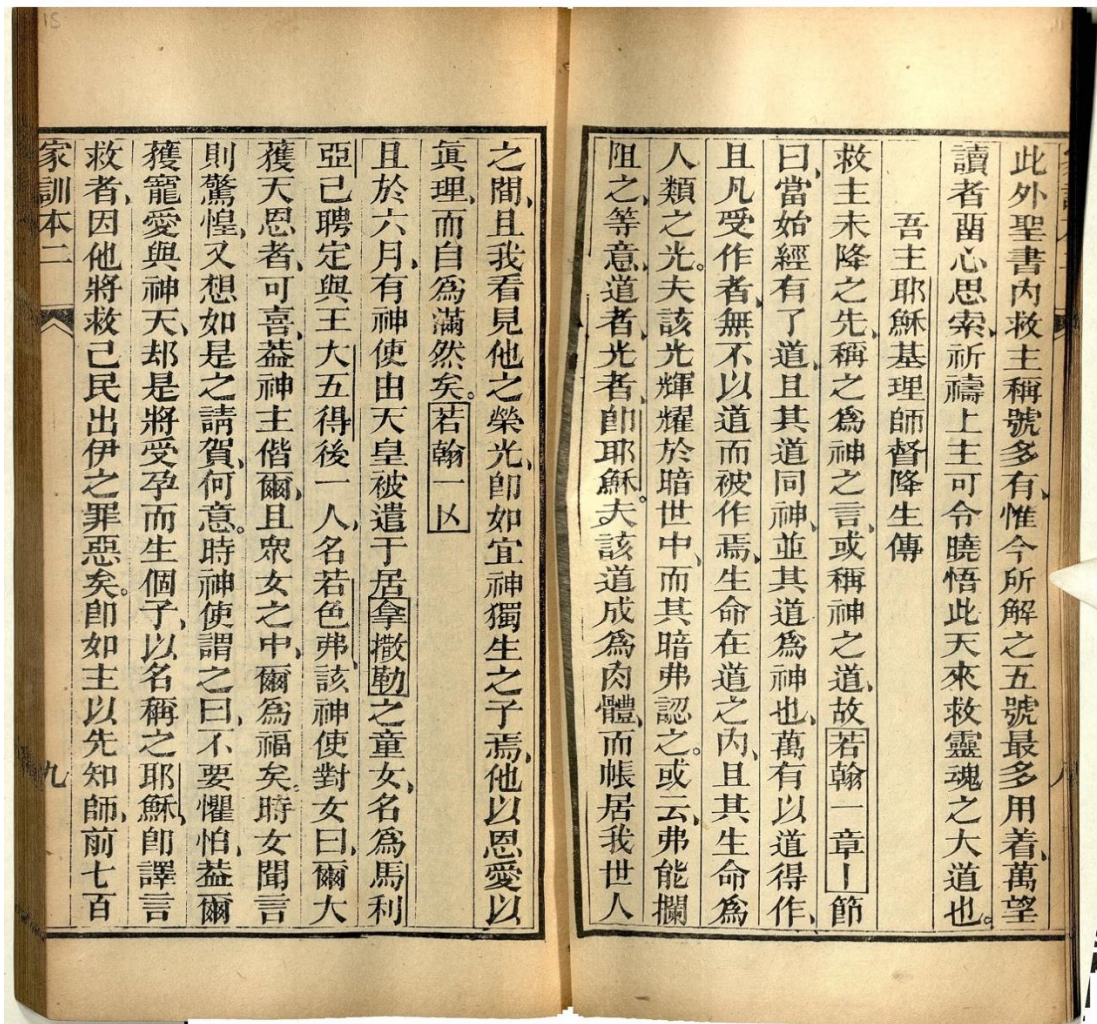 此外聖書內救主稱號多有、惟今所解之五號最多用着、萬望
讀者畱心思索、祈禱上主可令曉悟此天來救靈魂之大道也。
吾主耶穌基理師督降生傳
救主未降之先、稱之爲神之言、或稱神之道、故若翰一章〡節
曰、當始經有了道、且其道同神、並其道爲神也、萬有以道得作、
且凡受作者、無不以道而被作焉、生命在道之內、且其生命爲
人類之光。夫該光輝耀於暗世中、而其暗弗認之。或云、弗能攔
阻之、等意、道者、光者、卽耶穌。夫該道成爲肉體、而帳居我世人
之間、且我看見他之榮光、卽如宜神獨生之子焉、他以恩愛以
眞理、而自爲滿然矣。若翰一〤
且於六月、有神使由天皇被遣于居拿撒勒之童女、名爲馬利
亞、已聘定與王大五得後一人、名若色弗、該神使對女曰、爾大
獲天恩者、可喜、葢神主偕爾、且衆女之中、爾爲福矣。時女聞言
則驚惶、又想如是之請賀、何意。時神使謂之曰、不要懼怕、葢爾
獲寵愛與神天、却是將受孕而生個子、以名稱之耶穌、卽譯言
救者、因他將救己民出伊之罪惡矣。卽如主以先知師、前七百
家訓本二
九